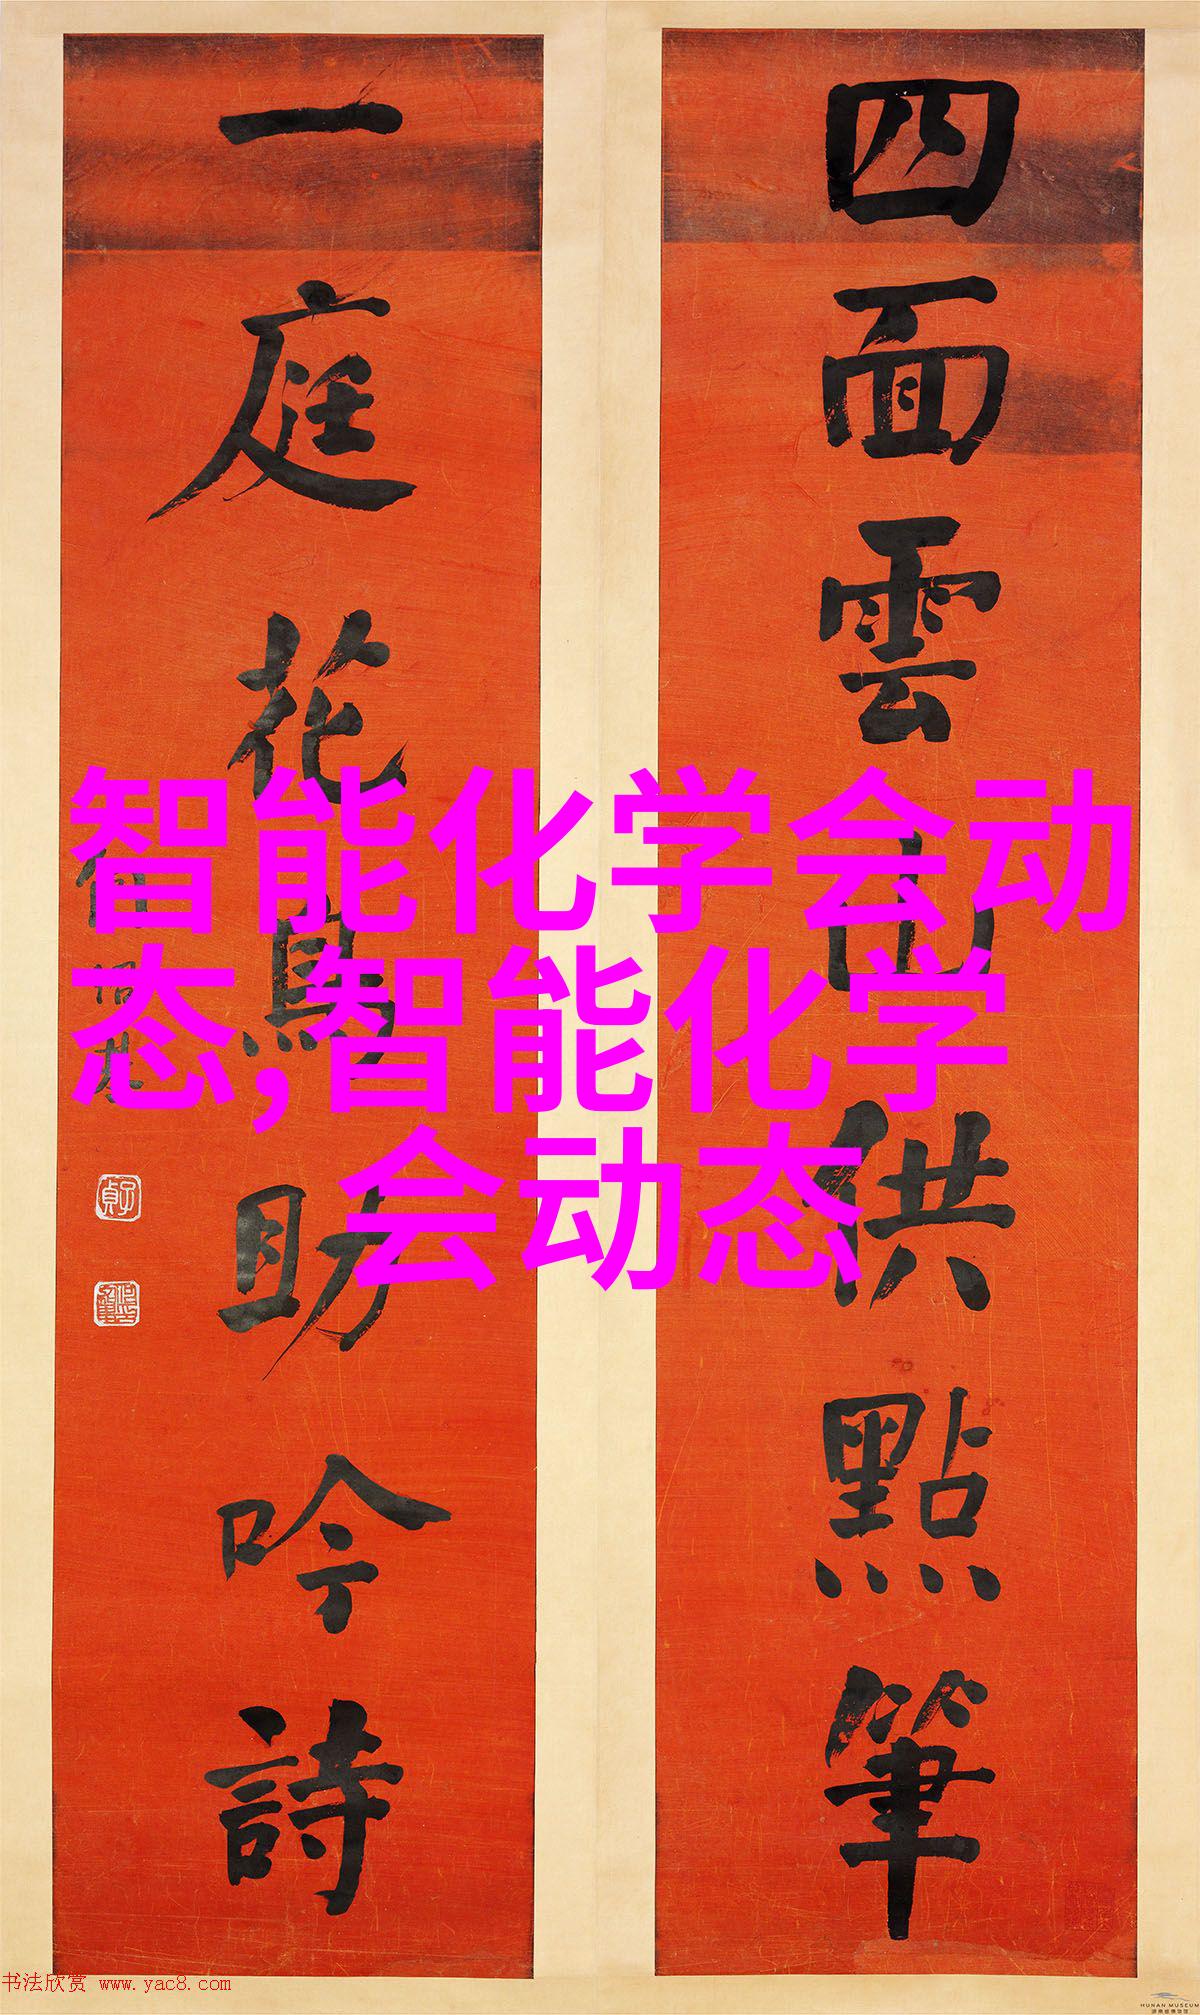 四面雲山供點筆
一庭花鳥助吟詩
子貞
智能化学会动
态,智能化学
会动态
书法欣赏 www.yac8.com
HUNAN MUSEUM
湖南博物院